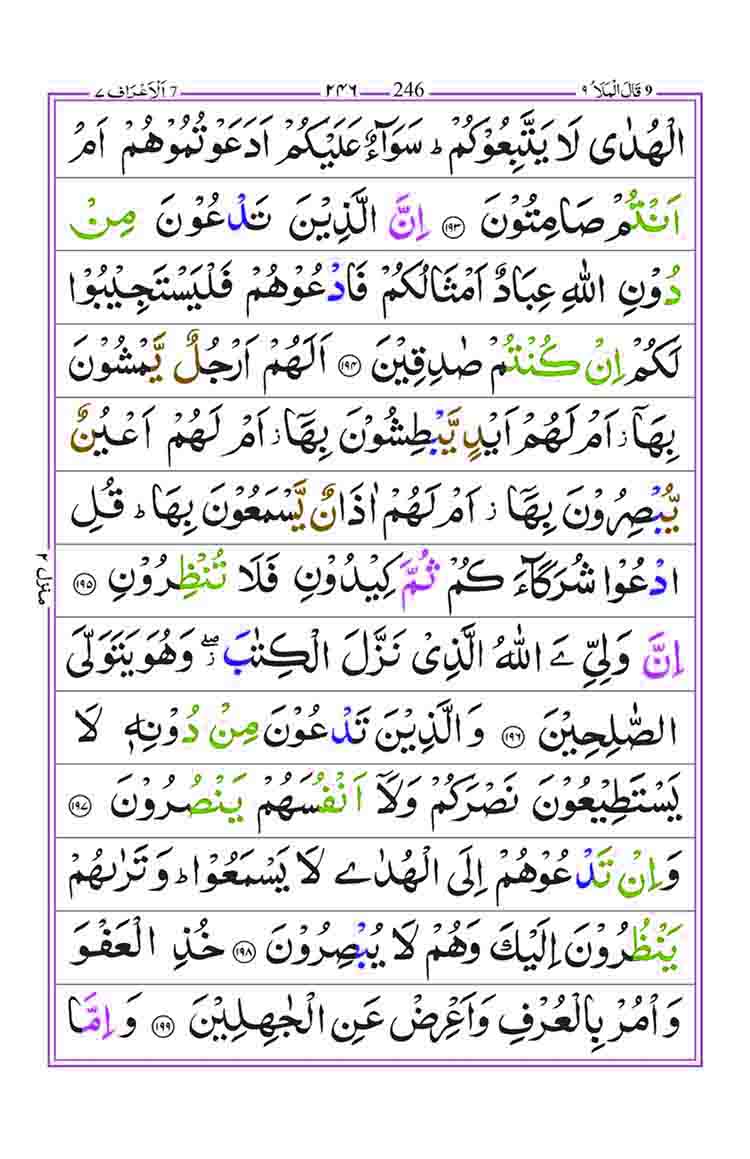 ٩ قَالَ الْمَلَاُ 9 246 ٢٤٦ 7 اَلْاَعْرَاف ٧
الْهُدٰى لَا يَتَّبِعُوْكُمْ ؕ سَوَآءٌ عَلَيْكُمْ اَدَعَوْتُمُوْهُمْ اَمْ
اَنْتُمْ صَامِتُوْنَ ﴿۱۹۳﴾ اِنَّ الَّذِيْنَ تَدْعُوْنَ مِنْ
دُوْنِ اللّٰهِ عِبَادٌ اَمْثَالُكُمْ فَادْعُوْهُمْ فَلْيَسْتَجِيْبُوْا
لَكُمْ اِنْ كُنْتُمْ صٰدِقِيْنَ ﴿۱۹۴﴾ اَلَهُمْ اَرْجُلٌ يَّمْشُوْنَ
بِهَاۤ ز اَمْ لَهُمْ اَيْدٍ يَّبْطِشُوْنَ بِهَاۤ ز اَمْ لَهُمْ اَعْيُنٌ
يُّبْصِرُوْنَ بِهَاۤ ز اَمْ لَهُمْ اٰذَانٌ يَّسْمَعُوْنَ بِهَا ؕ قُلِ
ادْعُوْا شُرَكَآءَ كُمْ ثُمَّ كِيْدُوْنِ فَلَا تُنْظِرُوْنِ ﴿۱۹۵﴾
اِنَّ وَلِيِّ ےَ اللّٰهُ الَّذِىْ نَزَّلَ الْكِتٰبَ ۖز وَهُوَ يَتَوَلَّى
الصّٰلِحِيْنَ ﴿۱۹۶﴾ وَالَّذِيْنَ تَدْعُوْنَ مِنْ دُوْنِهٖ لَا
يَسْتَطِيْعُوْنَ نَصْرَكُمْ وَلَاۤ اَنْفُسَهُمْ يَنْصُرُوْنَ ﴿۱۹۷﴾
وَاِنْ تَدْعُوْهُمْ اِلَى الْهُدٰے لَا يَسْمَعُوْا ؕ وَتَرٰٮهُمْ
يَنْظُرُوْنَ اِلَيْكَ وَهُمْ لَا يُبْصِرُوْنَ ﴿۱۹۸﴾ خُذِ الْعَفْوَ
وَاْمُرْ بِالْعُرْفِ وَاَعْرِضْ عَنِ الْجٰهِلِيْنَ ﴿۱۹۹﴾ وَاِمَّا
منزل ۲